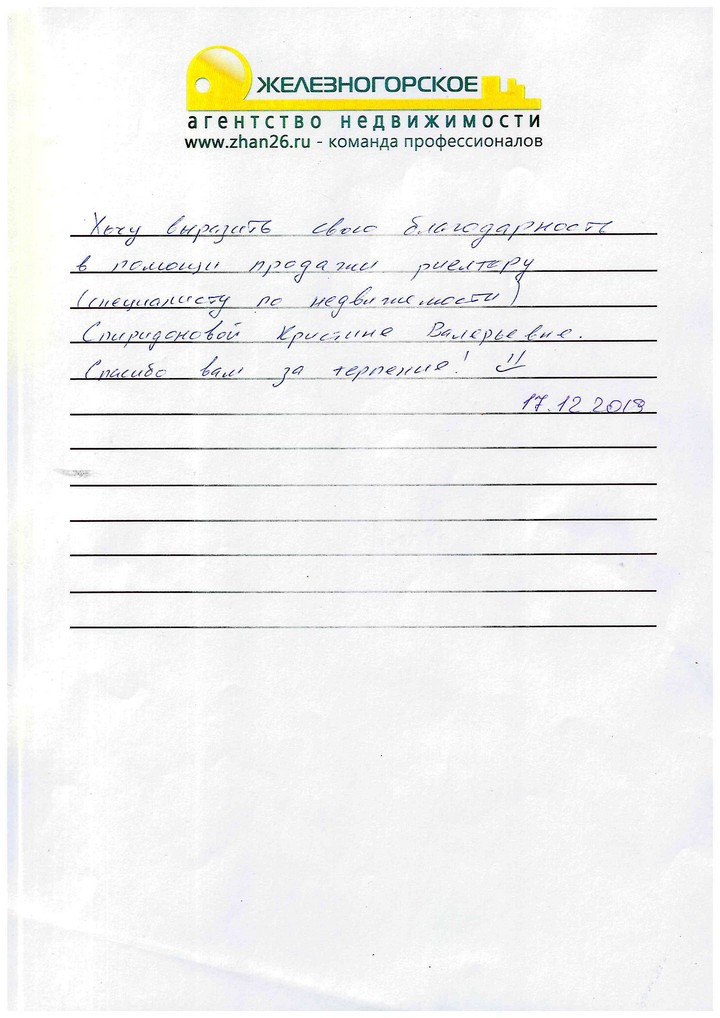 ЖЕЛЕЗНОГОРСКОЕ
агентство недвижимости
www.zhan26.ru - команда профессионалов
Хочу выразить свою благодарность
в помощи продажи риелтеру
(специалисту по недвижимости)
Спиридоновой Кристине Валерьевне.
Спасибо вам за терпение!
17.12 2019